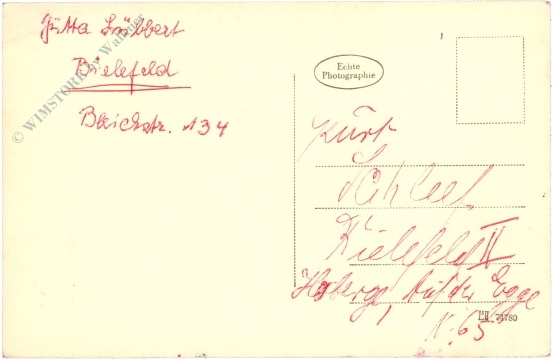 Jutta Lübbert
Bielefeld
Bleichstr. 134
© WIMSTORE by Wallner
Echte
Photographie
Kurt
Schlee
Bielefeld II
Hoberge, Auf der Egge
N. 65
74780